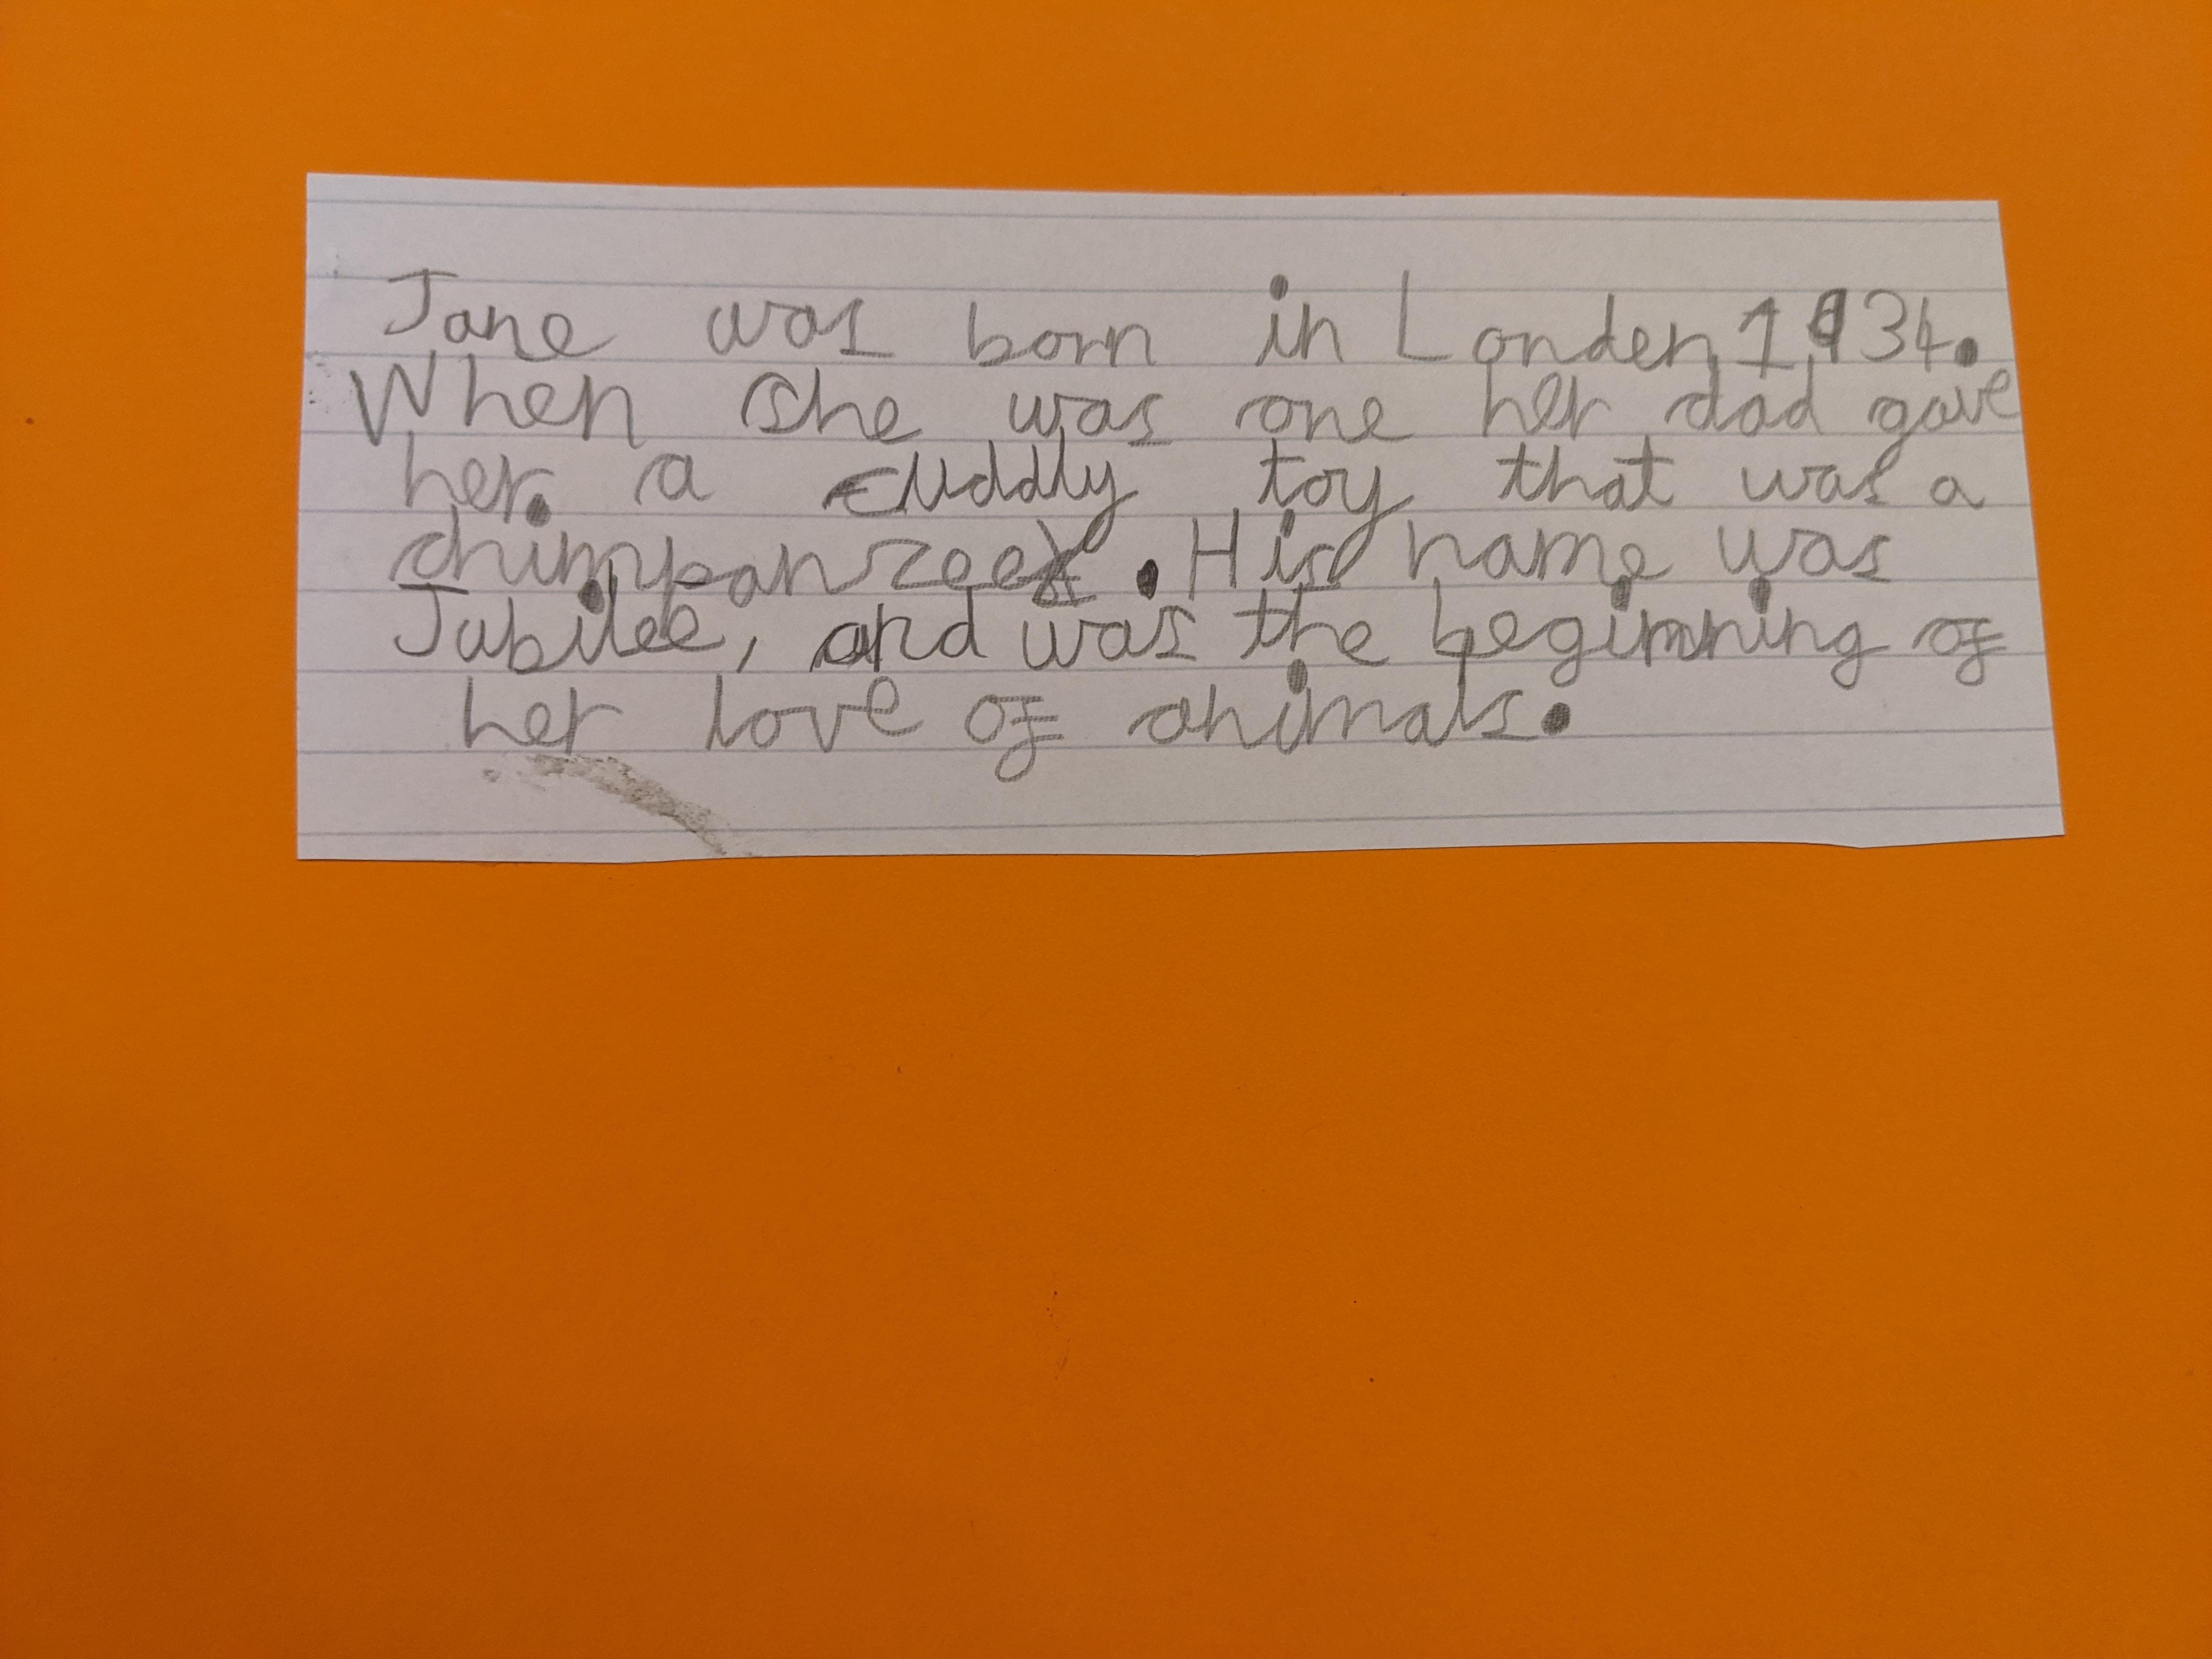 Jane was born in Londen 1934.
When she was one her dad gave
her. a cuddly toy that was a
chimpanzee. His name was
Jubilee, and was the beginning of
her love of animals.